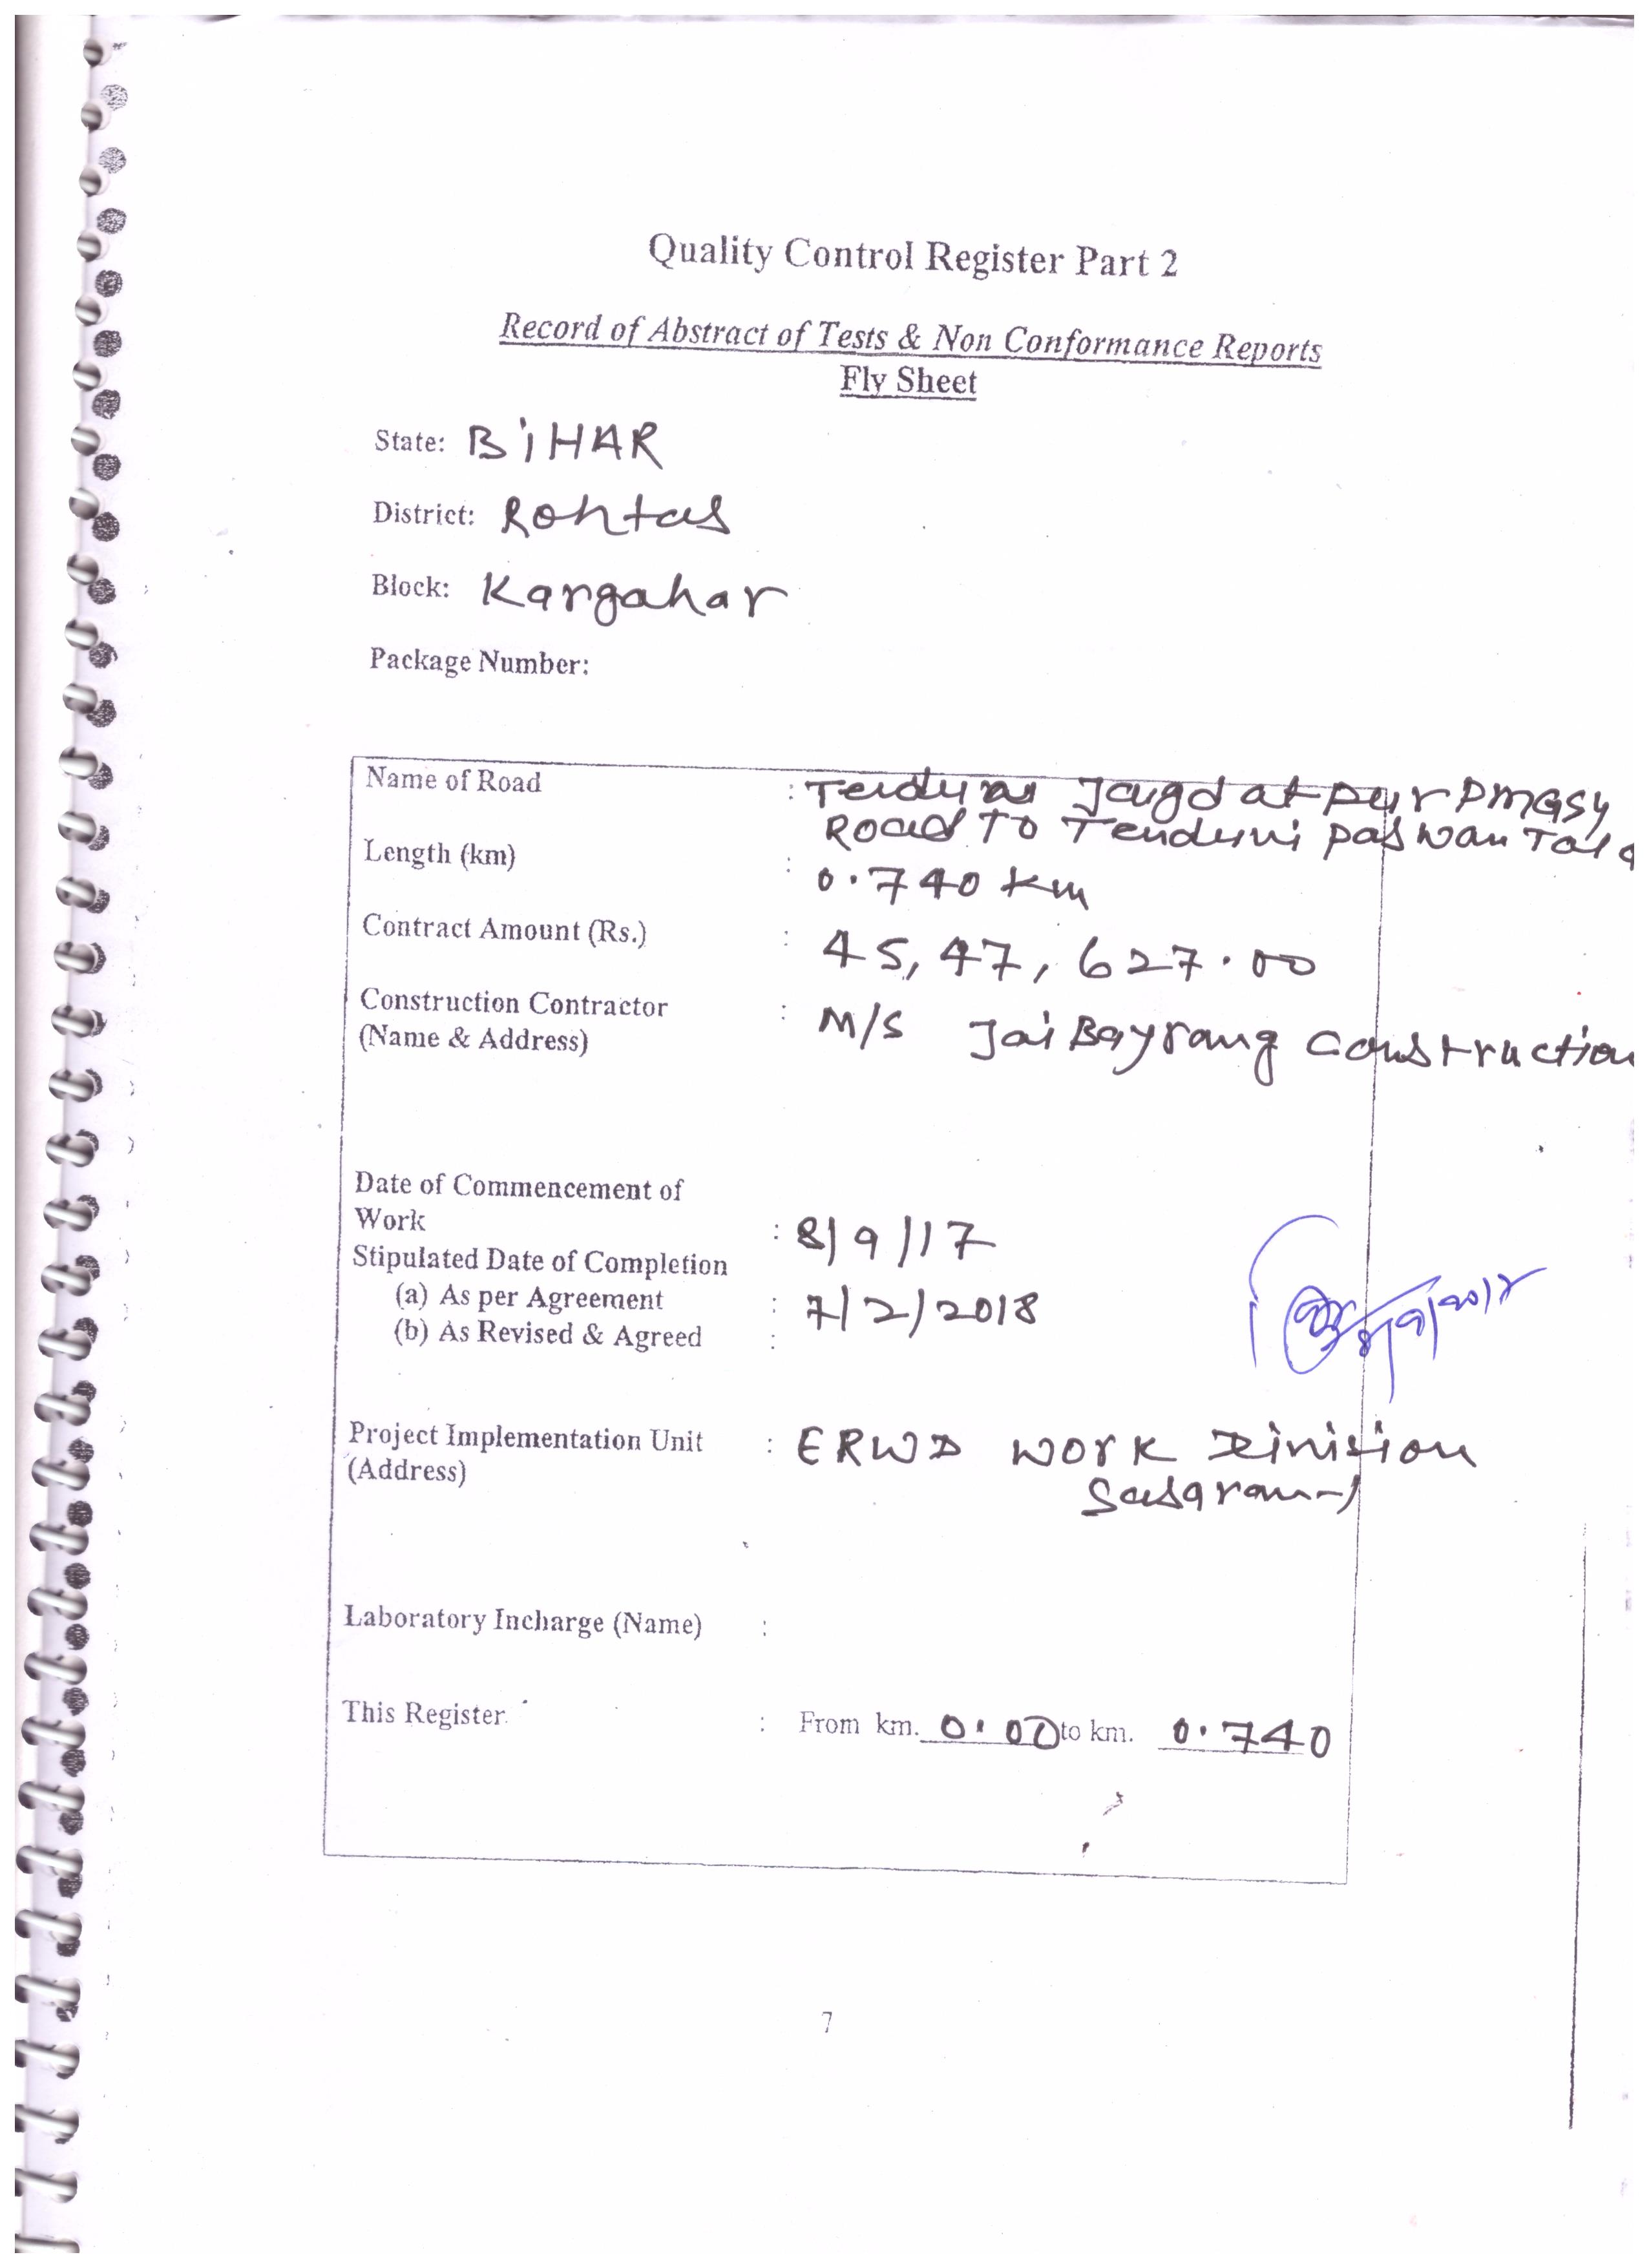 Quality Control Register Part 2
Record of Abstract of Tests & Non Conformance Reports
Fly Sheet
State: BiHAR
District: Rohtas
Block: Kargahar
Package Number:
Name of Road : Jagdatpur PMGSY
Road To Tenduni Paswan Tola
Length (km) : 0.740 km
Contract Amount (Rs.) : 45,47,627.00
Construction Contractor : M/S Jai Bajrang Construction
(Name & Address)
Date of Commencement of
Work : 8/9/17
Stipulated Date of Completion
(a) As per Agreement : 7/2/2018
(b) As Revised & Agreed :
Project Implementation Unit : ERWD Work Division
(Address) Sasaram-1
Laboratory Incharge (Name) :
This Register : From km. 0.00 to km. 0.740
7